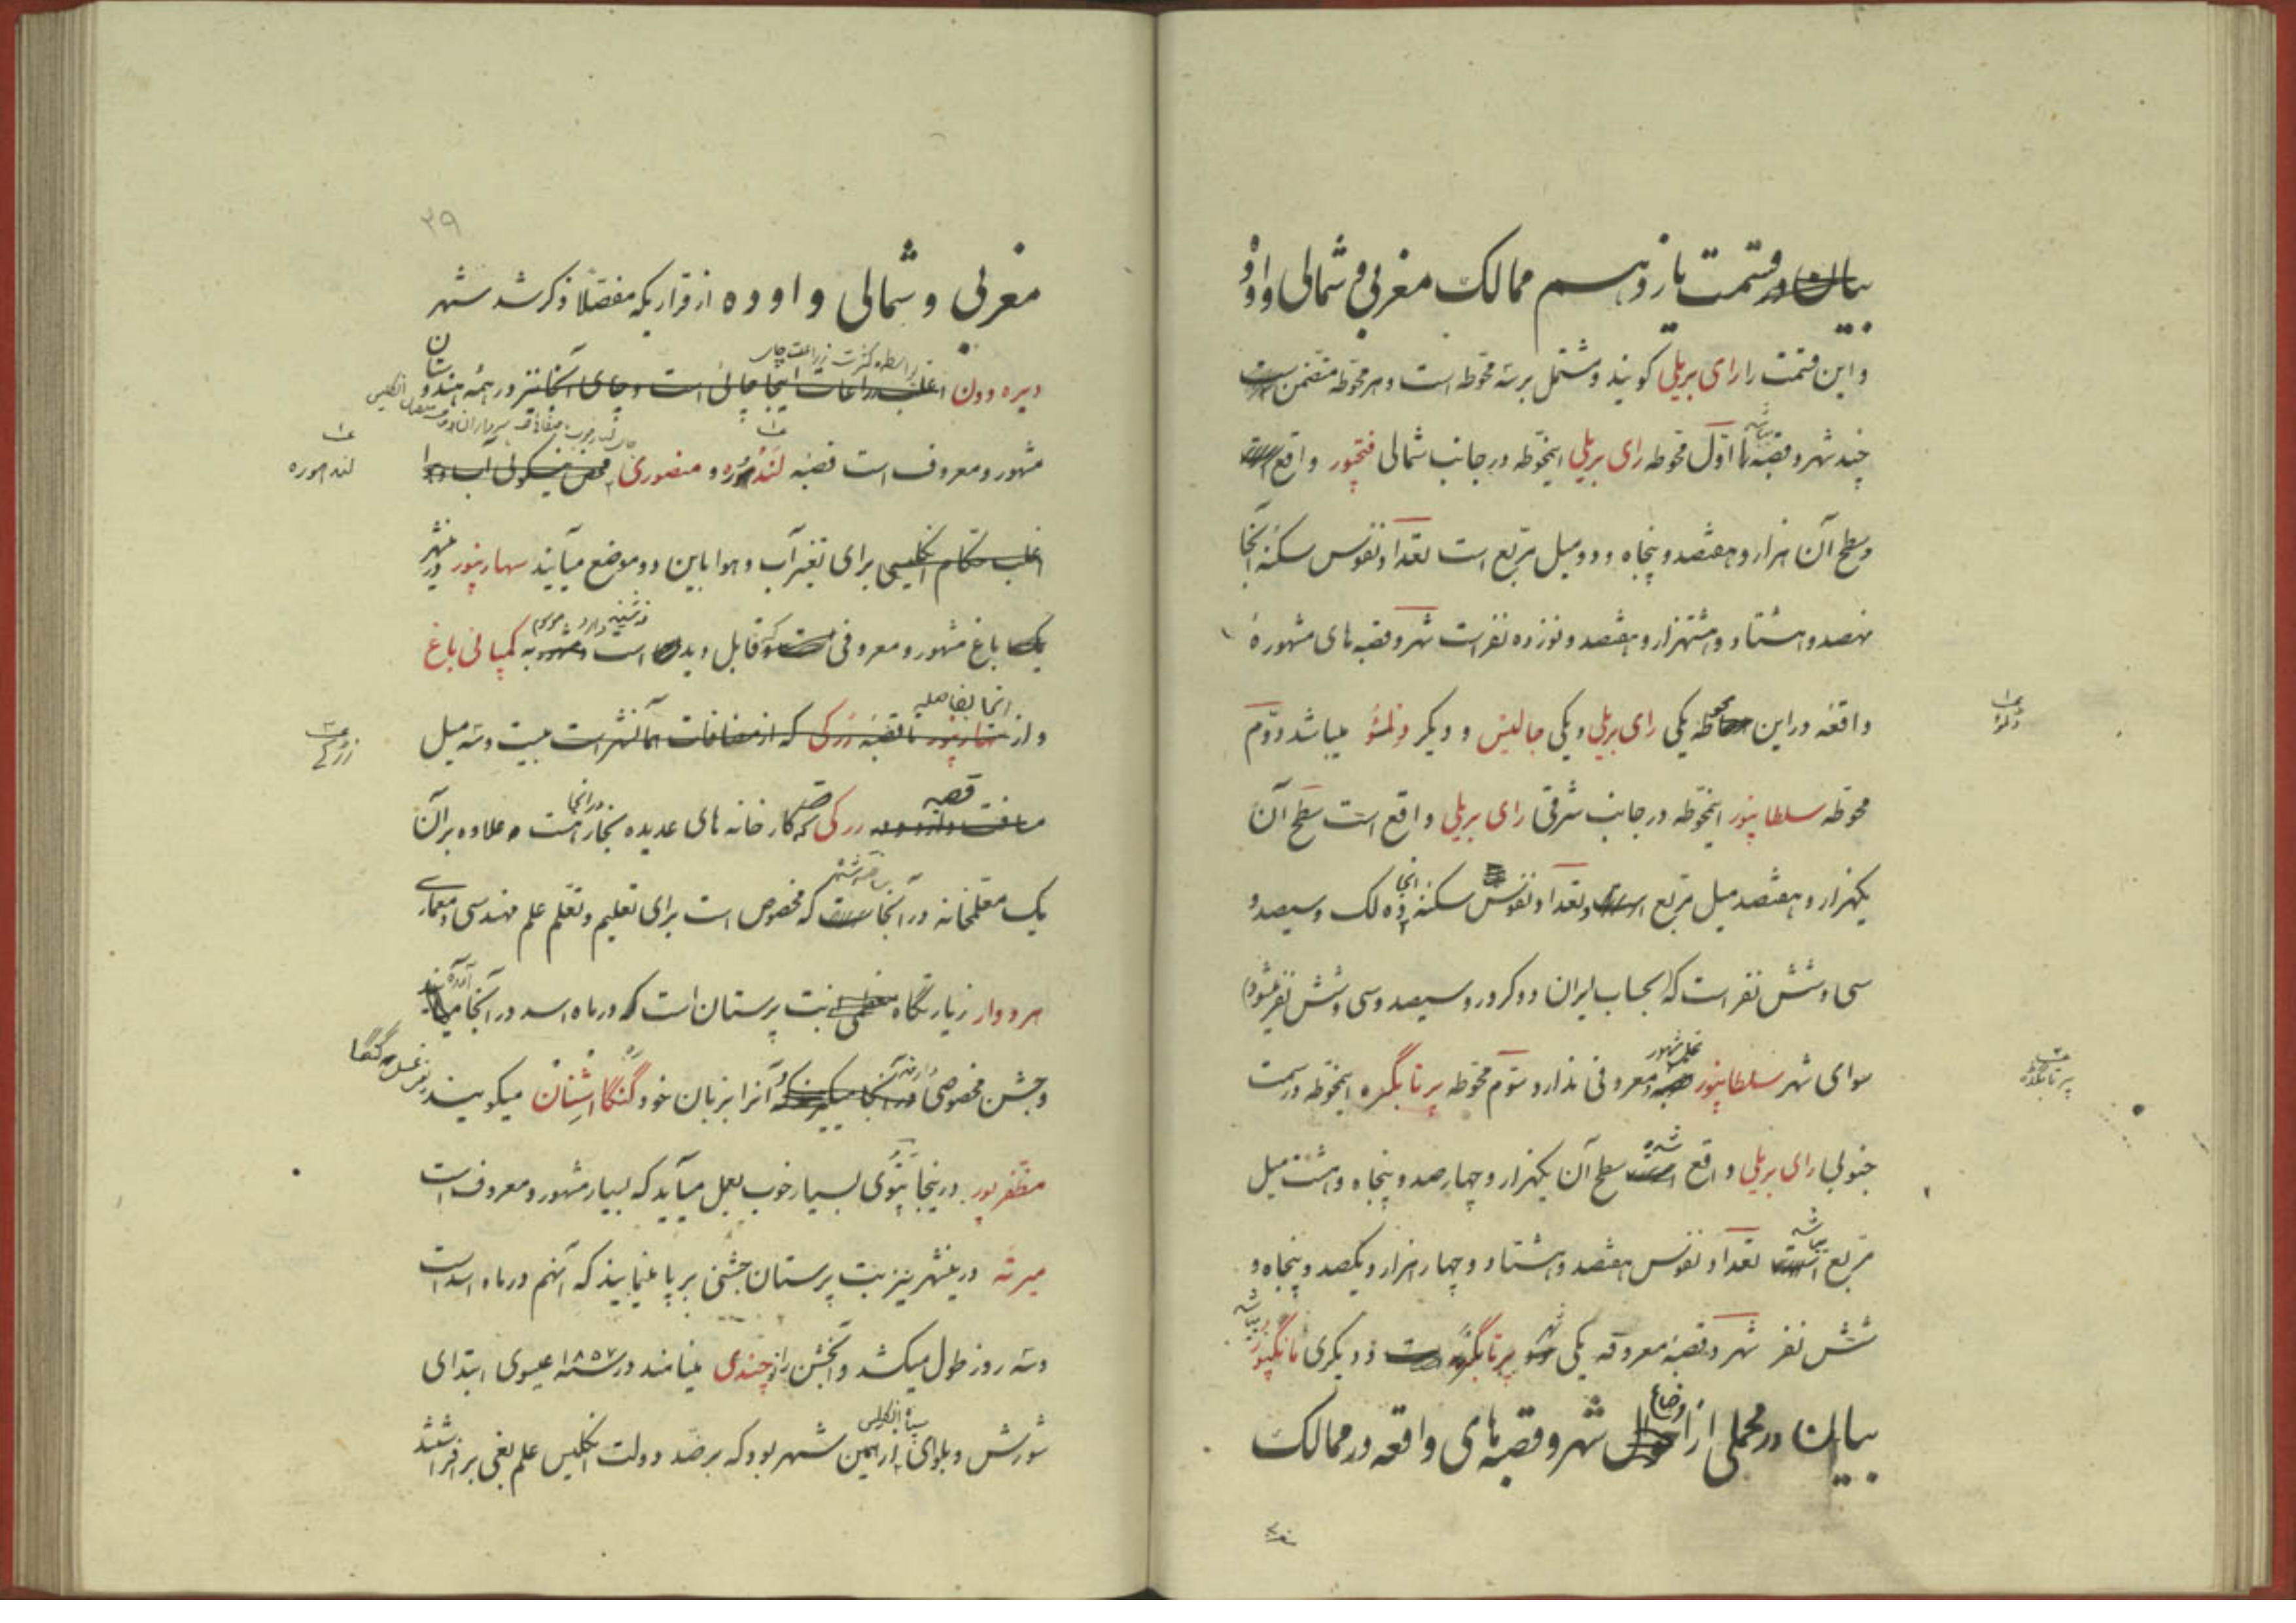 بیان در قسمت یازدهم ممالک مغربی و شمالی و اوده
و این قسمت را رای بریلی کویند و مشتمل بر سه محوطه است و هر محوطه متضمن است
چند شهر و قصبه اول محوطه رای بریلی اینمحوطه در جانب شمالی فتحپور واقع است
و سطح آن هزار و هفتصد و پنجاه و دو میل مربع است تعداد نفوس سکنه آنجا
نهصد و هشتاد و هشتهزار و هفتصد و نوزده نفر است شهر و قصبه های مشهوره
واقعه در این محوطه یکی رای بریلی و یکی جالیس و دیکر دلمئو میباشد دوم
محوطه سلطانپور اینمحوطه در جانب شرقی رای بریلی واقع است سطح آن
یکهزار و هفتصد میل مربع است و تعداد نفوس سکنه آنجا ده لک و سیصد و
سی و شش نفر است که بحساب ایران دو کرور و سیصد و سی و شش نفر میشود
سوای شهر سلطانپور محل مشهور و معروفی ندارد سوم محوطه پرتابگره اینمحوطه در سمت
پرتابگده
جنوبی رای بریلی واقع شده سطح آن یکهزار و چهار صد و پنجاه و هشت میل
مربع است تعداد نفوس هفتصد و هشتاد و چهار هزار و یکصد و پنجاه و
شش نفر شهر و قصبه معروفه یکی شهر پرتابگره است و دیکری مانگپور
بیان در مجملی از اوضاع شهر و قصبه های واقعه در ممالک
۳۹
مغربی و شمالی و اوده از قراریکه مفصلا ذکر شد شهر
دیره دون بواسطه کثرت زراعت چای اغلب زراعات اینجا چائی است و چای آنجا نیز در همه هندوستان
مشهور و معروف است قصبه لندهوره و منصوری
لندهوره
اغلب حکام انکلیسی برای تغیر آب و هوا باین دو موضع میآیند سهارنپور در شهر
یک باغ مشهور و معروفی است که قابل دیدن است و مشهور به کمپانی باغ
و از سهارنپور تا قصبه زرکی که از مضافات همانشهر است بیست و سه میل
انجا بفاصله
قصبه زرکی که کار خانه های عدیده نجار در آنجا هست و علاوه بر آن
یک معلمخانه در آنجا است که مخصوص است برای تعلیم و تعلم علم مهندسی و معماری
هردوار زیارتگاه معظمی بت پرستان است که در ماه اسد در آنجا میآیند
و جشن مخصوصی در آنجا میکیرند که آنرا بزبان خود گنگا اشنان میکویند یعنی غسل گنگا
مظفرپور در ینجا تنبوی بسیار خوب بعمل میآید که بسیار مشهور و معروف است
میرته در ینشهر نیز بت پرستان جشنی بر پا مینمایند که آنهم در ماه اسد است
و سه روز طول میکشد و آنجشن را نوچندی مینامند در سنه ۱۸۵۷ عیسوی ابتدای
شورش و بلوای سپاه انکلیس از همین شهر بود که بر ضد دولت انکلیس علم بغی بر افراشتند